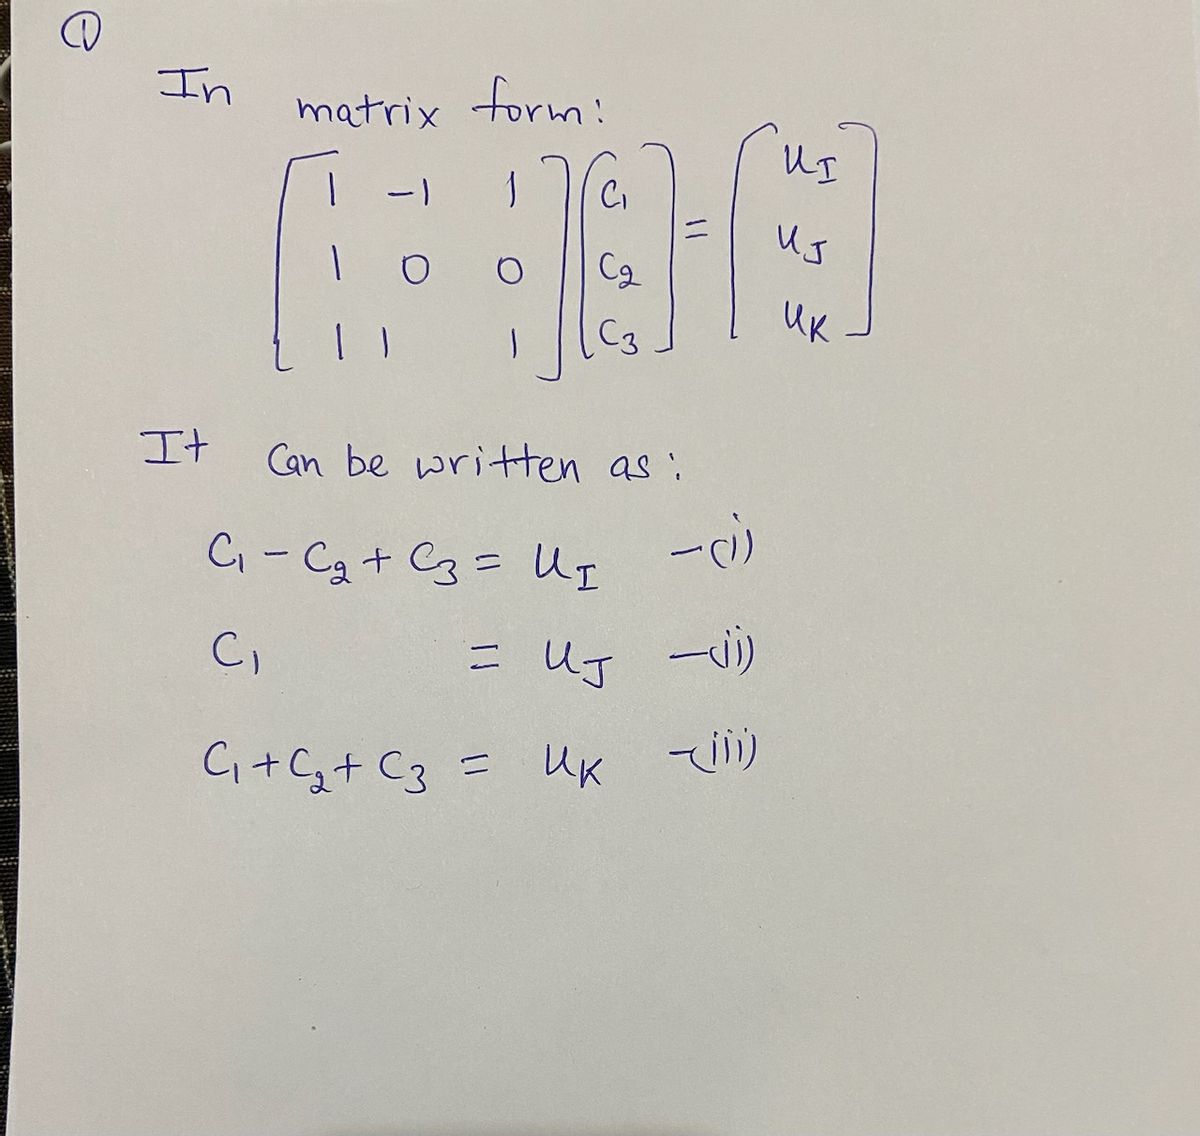 ①
In matrix form:
[1 -1 1] [C₁] = [u_I]
[1 0 0] [C₂] [u_J]
[1 1 1] [C₃] [u_K]
It Can be written as:
C₁ - C₂ + C₃ = u_I -(i)
C₁ = u_J -(ii)
C₁ + C₂ + C₃ = u_K -(iii)